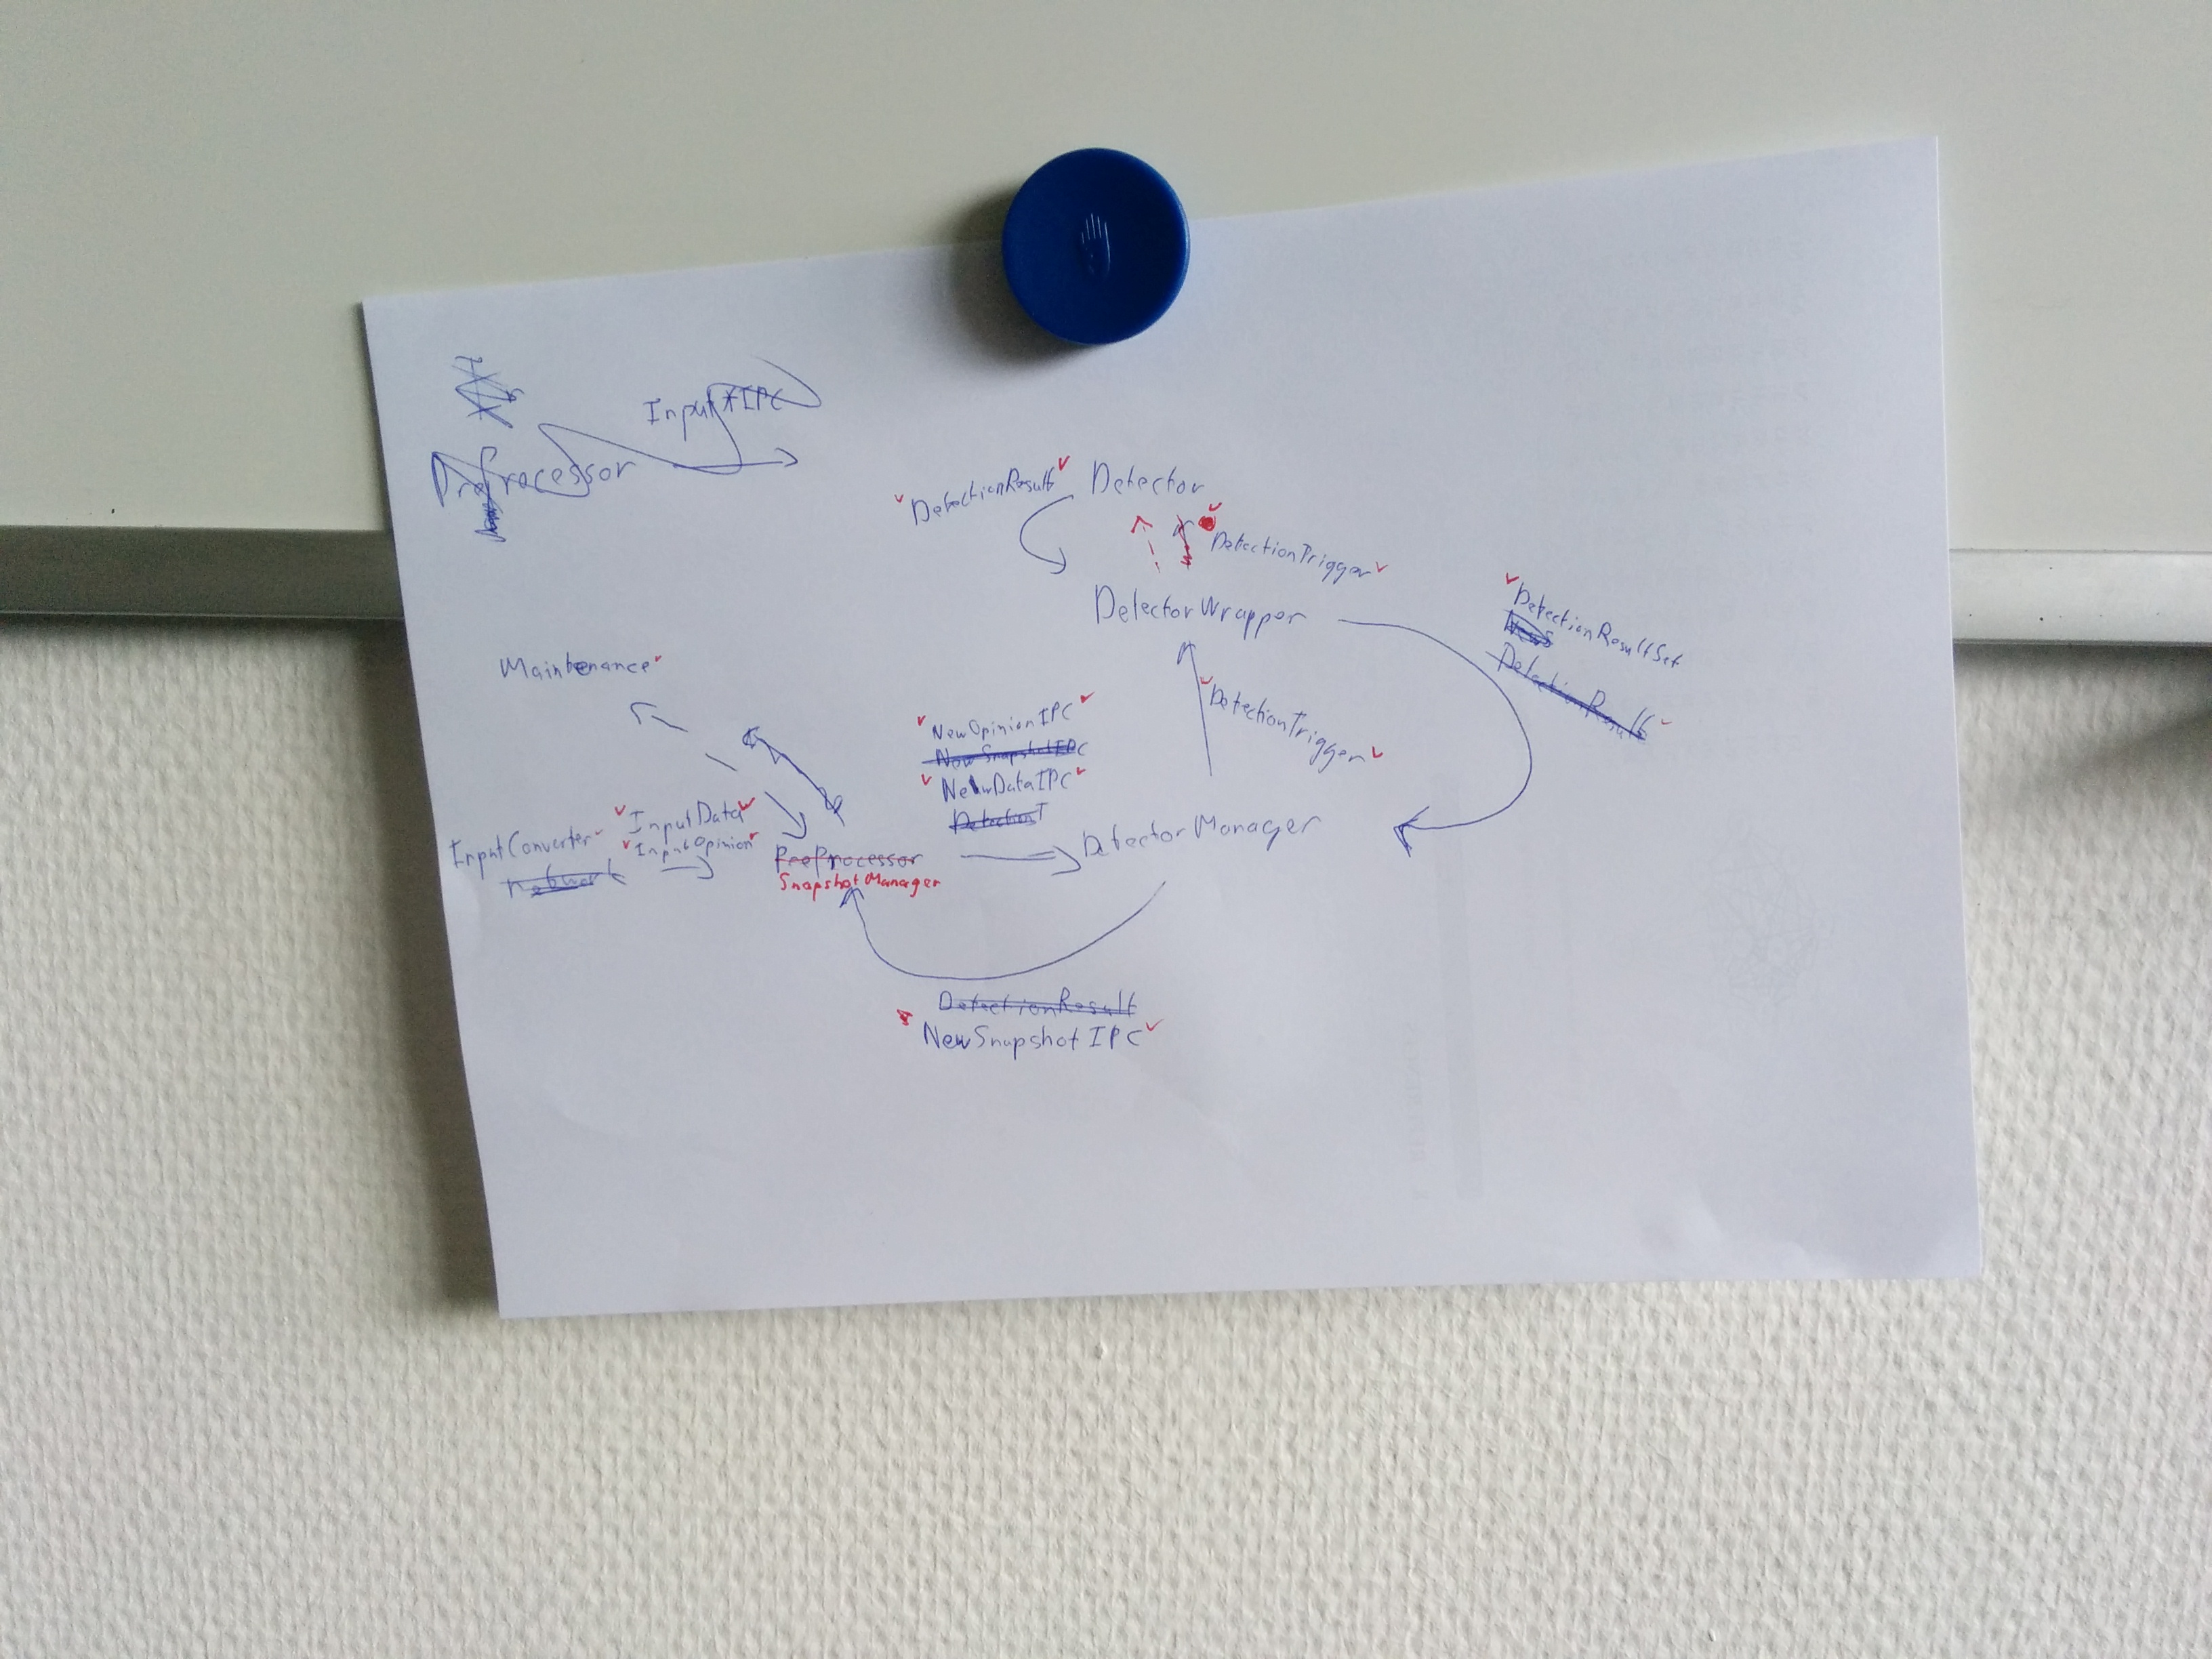 Input*IPC
PreProcessor
DetectionResult
Detector
DetectionTrigger
DetectorWrapper
DetectionResultSet
News
DetectionResult
Maintenance
NewOpinionIPC
NewSnapshotIPC
NewDataIPC
DetectionT
DetectionTrigger
InputConverter
Network
InputData
InputOpinion
PreProcessor
SnapshotManager
DetectorManager
DetectionResult
NewSnapshotIPC